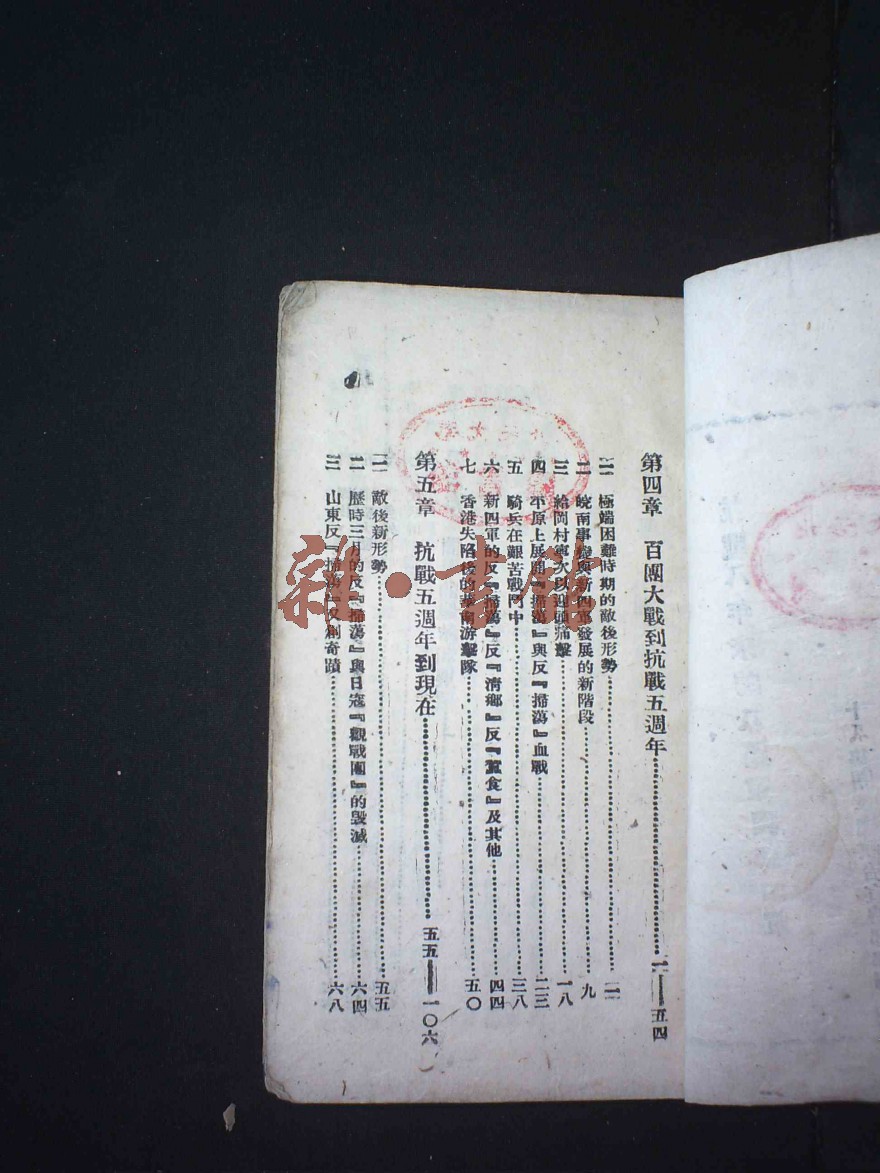 第四章 百團大戰到抗戰五週年……一——五四
一 極端困難時期的敵後形勢……一
二 皖南事變與新四軍發展的新階段……九
三 給岡村寧次以迎頭痛擊……一八
四 平原上展開『掃蕩』與反『掃蕩』血戰……二三
五 騎兵在艱苦戰鬥中……三八
六 新四軍的反『掃蕩』反『清鄉』反『蠶食』及其他……四四
七 香港失陷後的華南游擊隊……五〇
第五章 抗戰五週年到現在……五五——一〇六
一 敵後新形勢……五五
二 歷時三月的反『掃蕩』與日寇『觀戰團』的毀滅……六四
三 山東反『掃蕩』反創奇蹟……六八
雜·書館